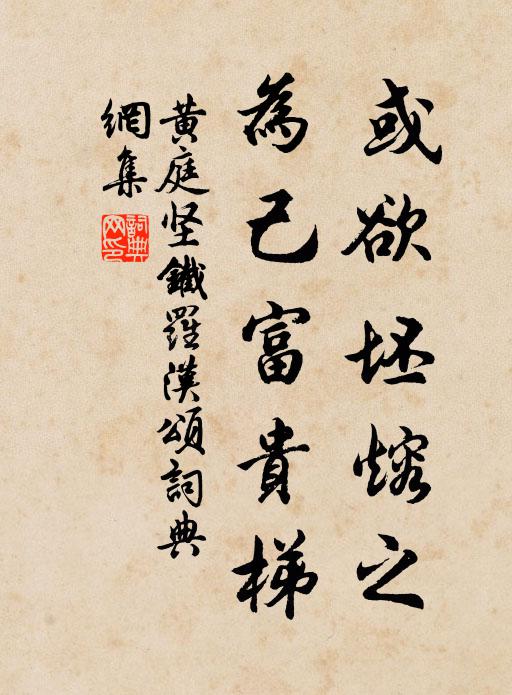 或欲坯熔之
為己富貴梯
黄庭坚鐵羅漢頌詞典
網集
詞典網印